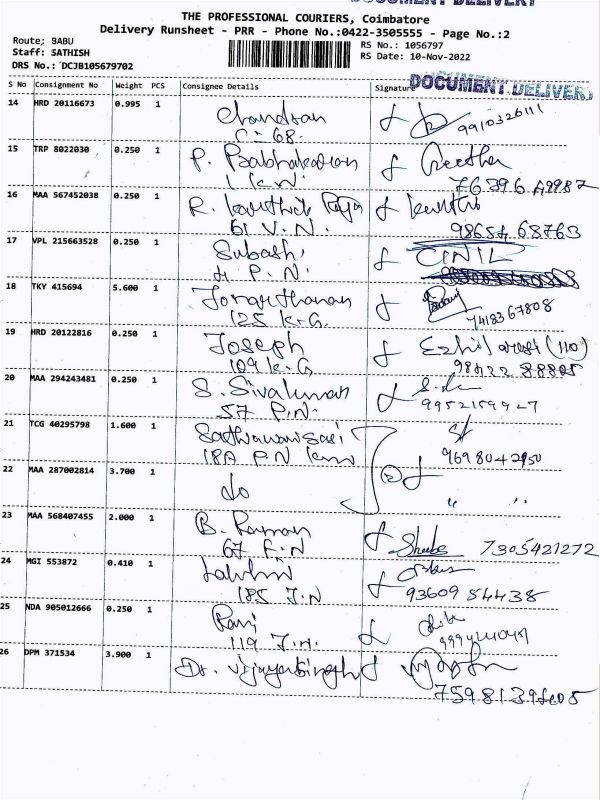 DOCUMENT DELIVERY
THE PROFESSIONAL COURIERS, Coimbatore
Delivery Runsheet - PRR - Phone No.:0422-3505555 - Page No.:2
Route; BABU
Staff: SATHISH
DRS No.: DCJB105679702
RS No.: 1056797
RS Date: 10-Nov-2022
DOCUMENT DELIVERY
S No Consignment No Weight PCS Consignee Details Signature
14 HRD 20116673 0.995 1 Chandran
C-68. 9910326111
15 TRP 8022030 0.250 1 P. Geetha
1 K.N.
16 MAA 567452038 0.250 1 R. Karthik Raja
61 V.N. 98654 68763
17 VPL 215663528 0.250 1 Subash, CINIL
4 P.N.
18 TKY 415694 5.600 1 Janarthanan
125 K.G. 7418367808
19 HRD 20122816 0.250 1 Joseph Ezhil arasi (110)
109 K.G
20 MAA 294243481 0.250 1 S. Sivakumar
57 P.N. 9952159927
21 TCG 40295798 1.600 1
18A P.N 9698042950
22 MAA 287002814 3.700 1 do " "
23 MAA 568407455 2.000 1 B. Raman
67 F.N 7305421272
24 MGI 553872 0.410 1 Lakshmi
185 J.N 93609 54438
25 NDA 905012666 0.250 1 Ravi
119 J.N.
26 DPM 371534 3.900 1 Dr. Vijayasingh